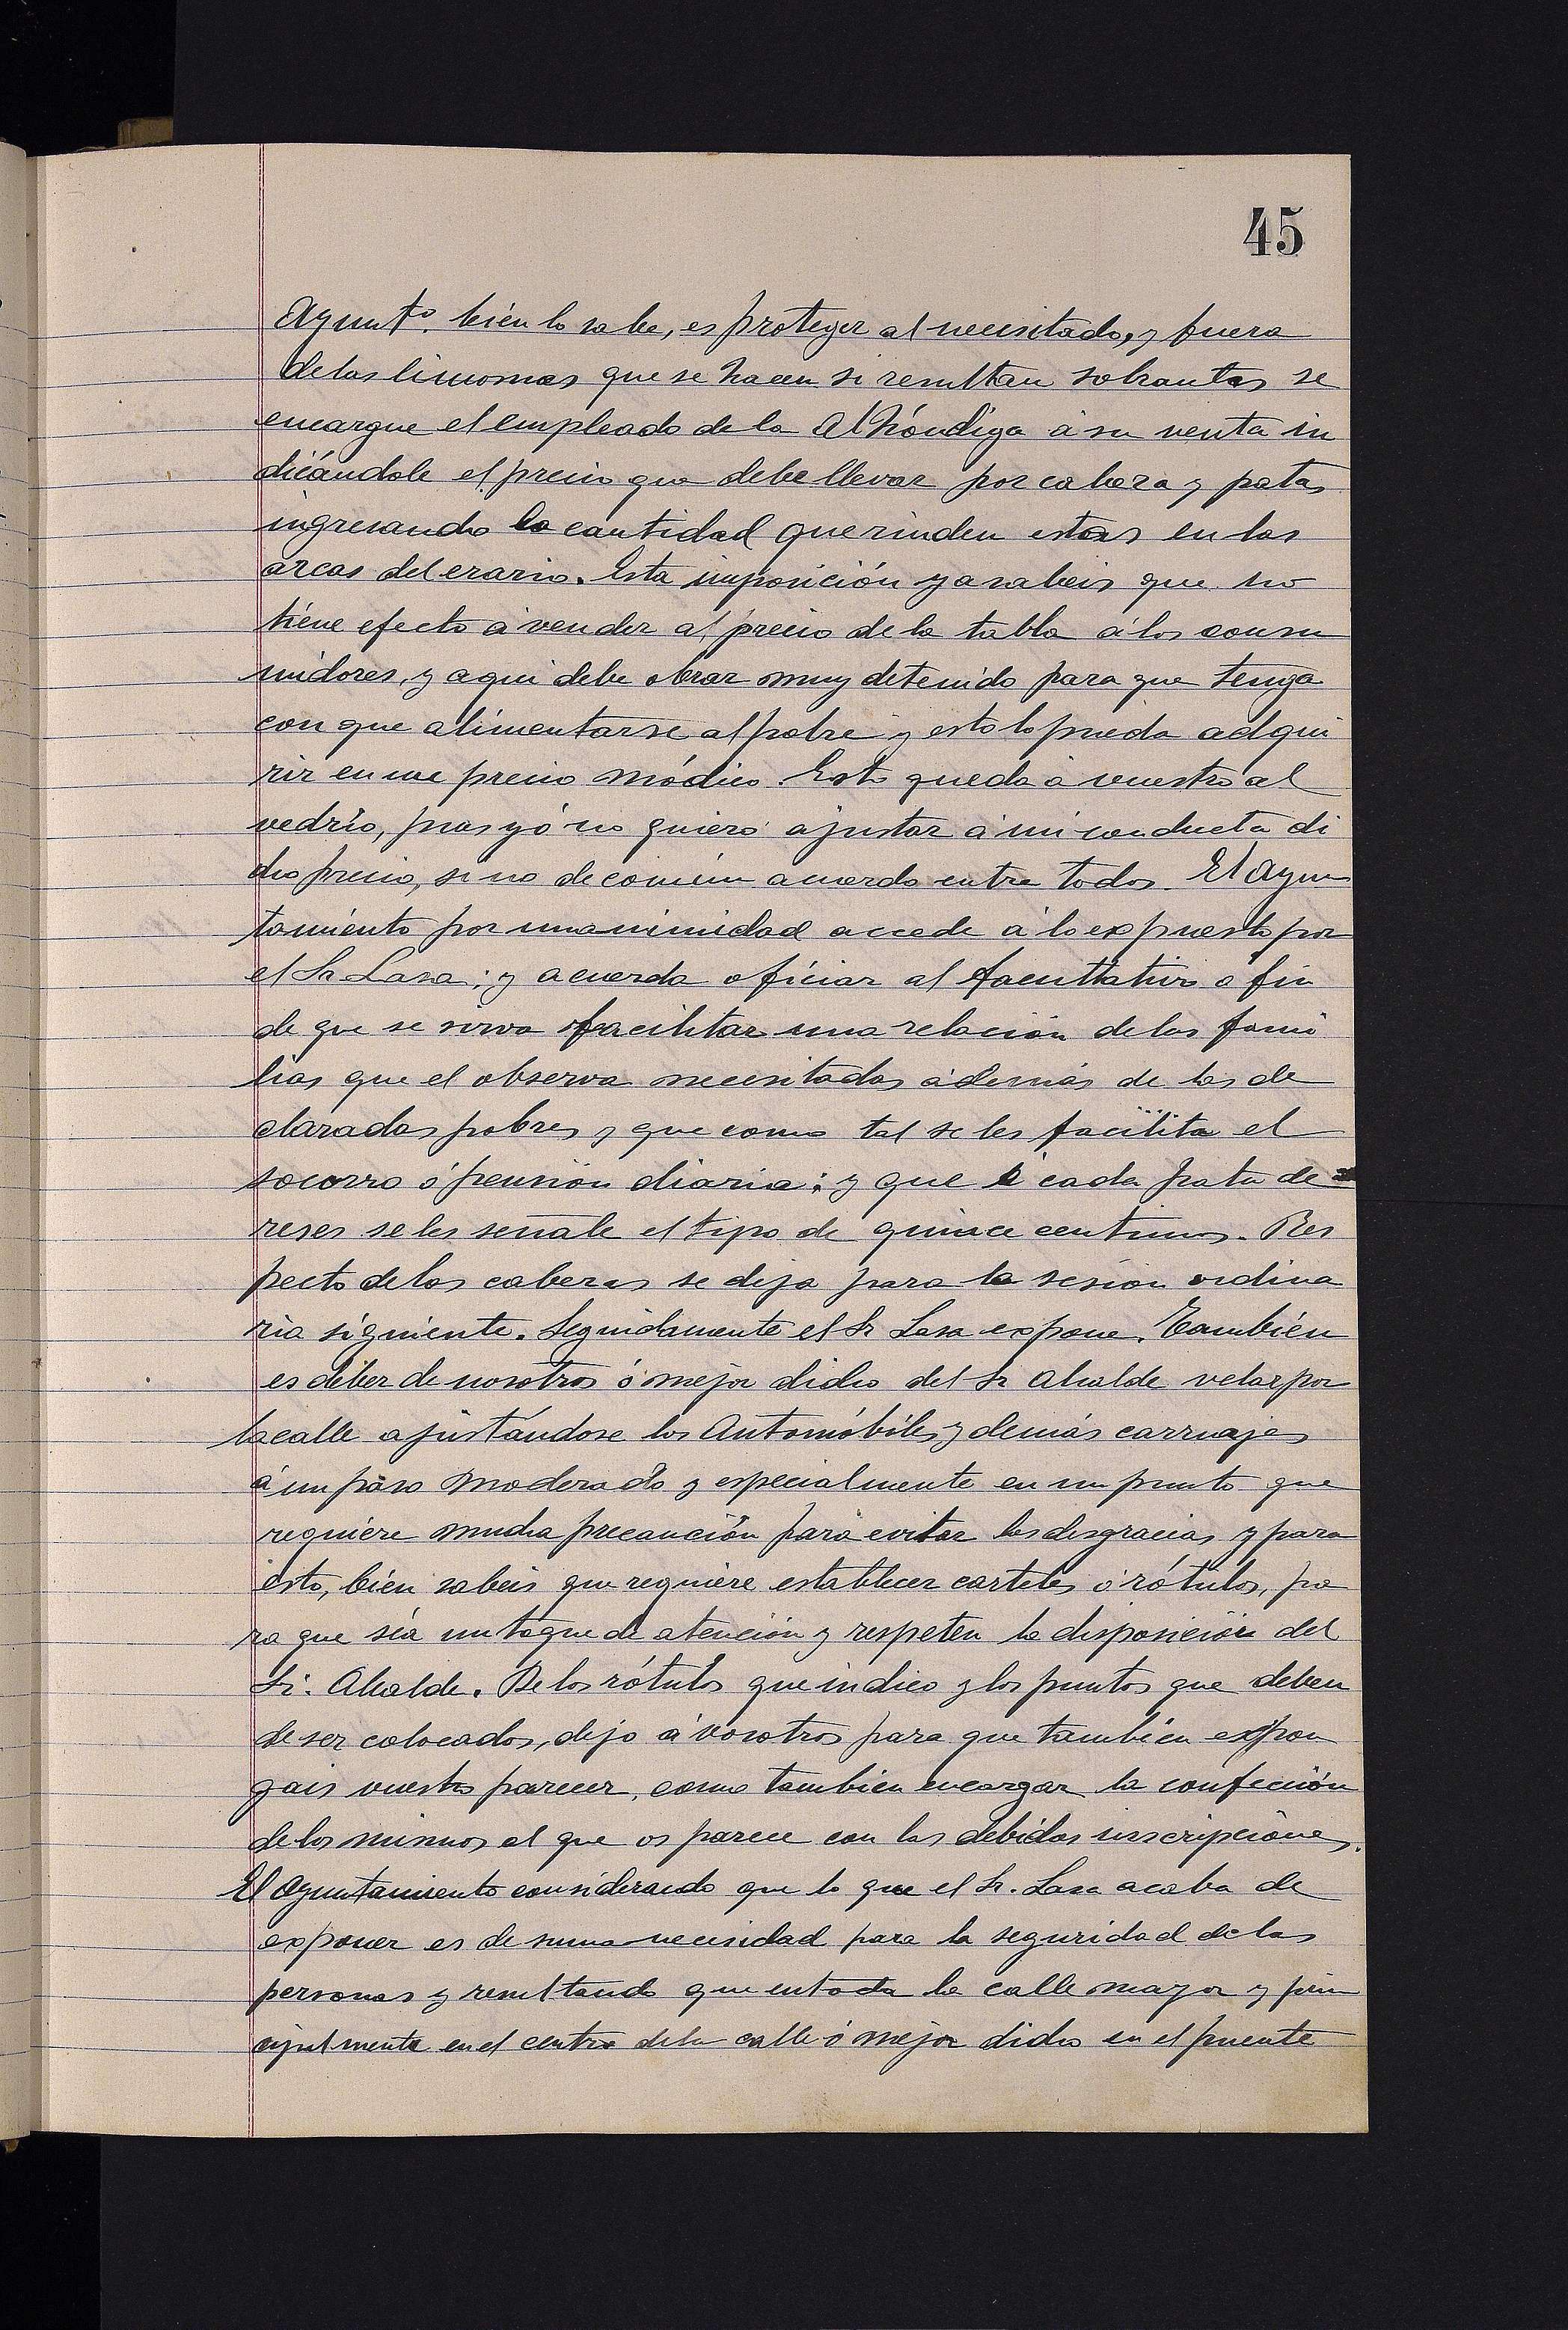 45
Ayunt.º bién lo sabe, es proteger al necesitado, y fuera
de las limosnas que se hacen si resultan sobrantes se
encargue el empleado de la Alhóndiga á su venta in
dicándole el precio que debe llevar por cabeza y patas
ingresando la cantidad que rinden estas en las
arcas del erario. Esta imposición ya sabeis que no
tiéne efecto á vender al precio de la tabla á los consu
midores, y aqui debe obrar muy detenido para que tenga
con que alimentarse al pobre y esto lo pueda adqui
rir en un precio módico. Esto queda á vuestro al
vedrío, pues yó no quiero ajustar á mi conducta di
cho precio, si no de común acuerdo entre todos. El Ayun
tamiento por unanimidad accede á lo expuesto por
el Sr Lasa; y acuerda oficiar al facultativo a fin
de que se sirva facilitar una relación de las fami
lias que el observa necesitadas además de las de
claradas pobres y que como tal se les facilita el
socorro ó pensión diaria; y que á cada pata de
reses se les señale el tipo de quince centimos. Res
pecto de las cabezas se deja para la sesión ordina
ria siguiente. Seguidamente el Sr Lasa expone. También
es deber de nosotros ó mejor dicho del Sr Alcalde velar por
la calle ajustándose los Automóbiles y demás carruajes
á un paso moderado y especialmente en un punto que
requiere mucha precaución para evitar las desgracias y para
esto, bién sabeis que requiere establecer carteles ó rótulos, pa
ra que séa un toque de atención y respeten la disposición del
Sr. Alcalde. De los rótulos que indico y los puntos que deben
de ser colocados, dejo á vosotros para que también expon
gais vuestro parecer, como también encargar la confección
de los mismos al que os parece con las debidas inscripciónes.
El Ayuntamiento considerando que lo que el Sr. Lasa acaba de
exponer es de suma necesidad para la seguridad de las
personas y resultando que en toda la calle mayor y prin
cipalmente en el centro de la calle ó mejor dicho en el puente